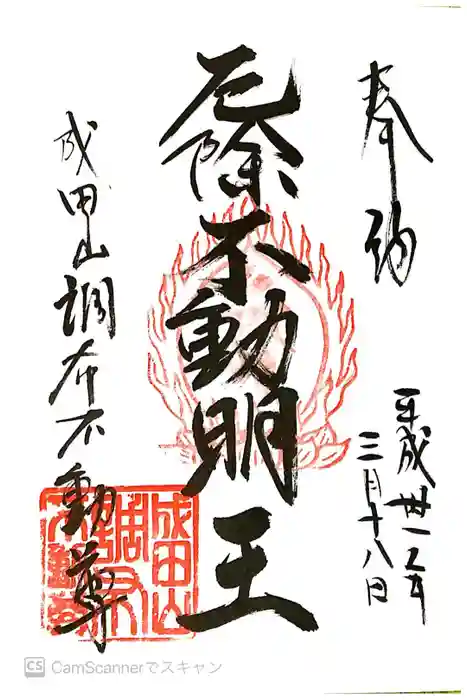 奉納
平成卅一年
三月十八日
厄除不動明王
成田山調布不動尊
成田山
調布
不動尊
CS CamScannerでスキャン